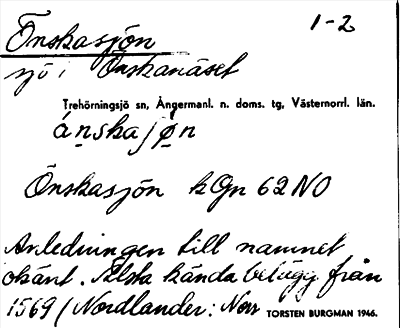 Önskasjön 1-2
sjö i Önskanäset
Trehörningsjö sn, Ångermanl. n. doms. tg, Västernorrl. län.
ánskajøn
Önskasjön kGn 62 NO
Avledningen till namnet
okänt. Älsta kända belägg från
1569 (Nordlander: Norr
TORSTEN BURGMAN 1946.